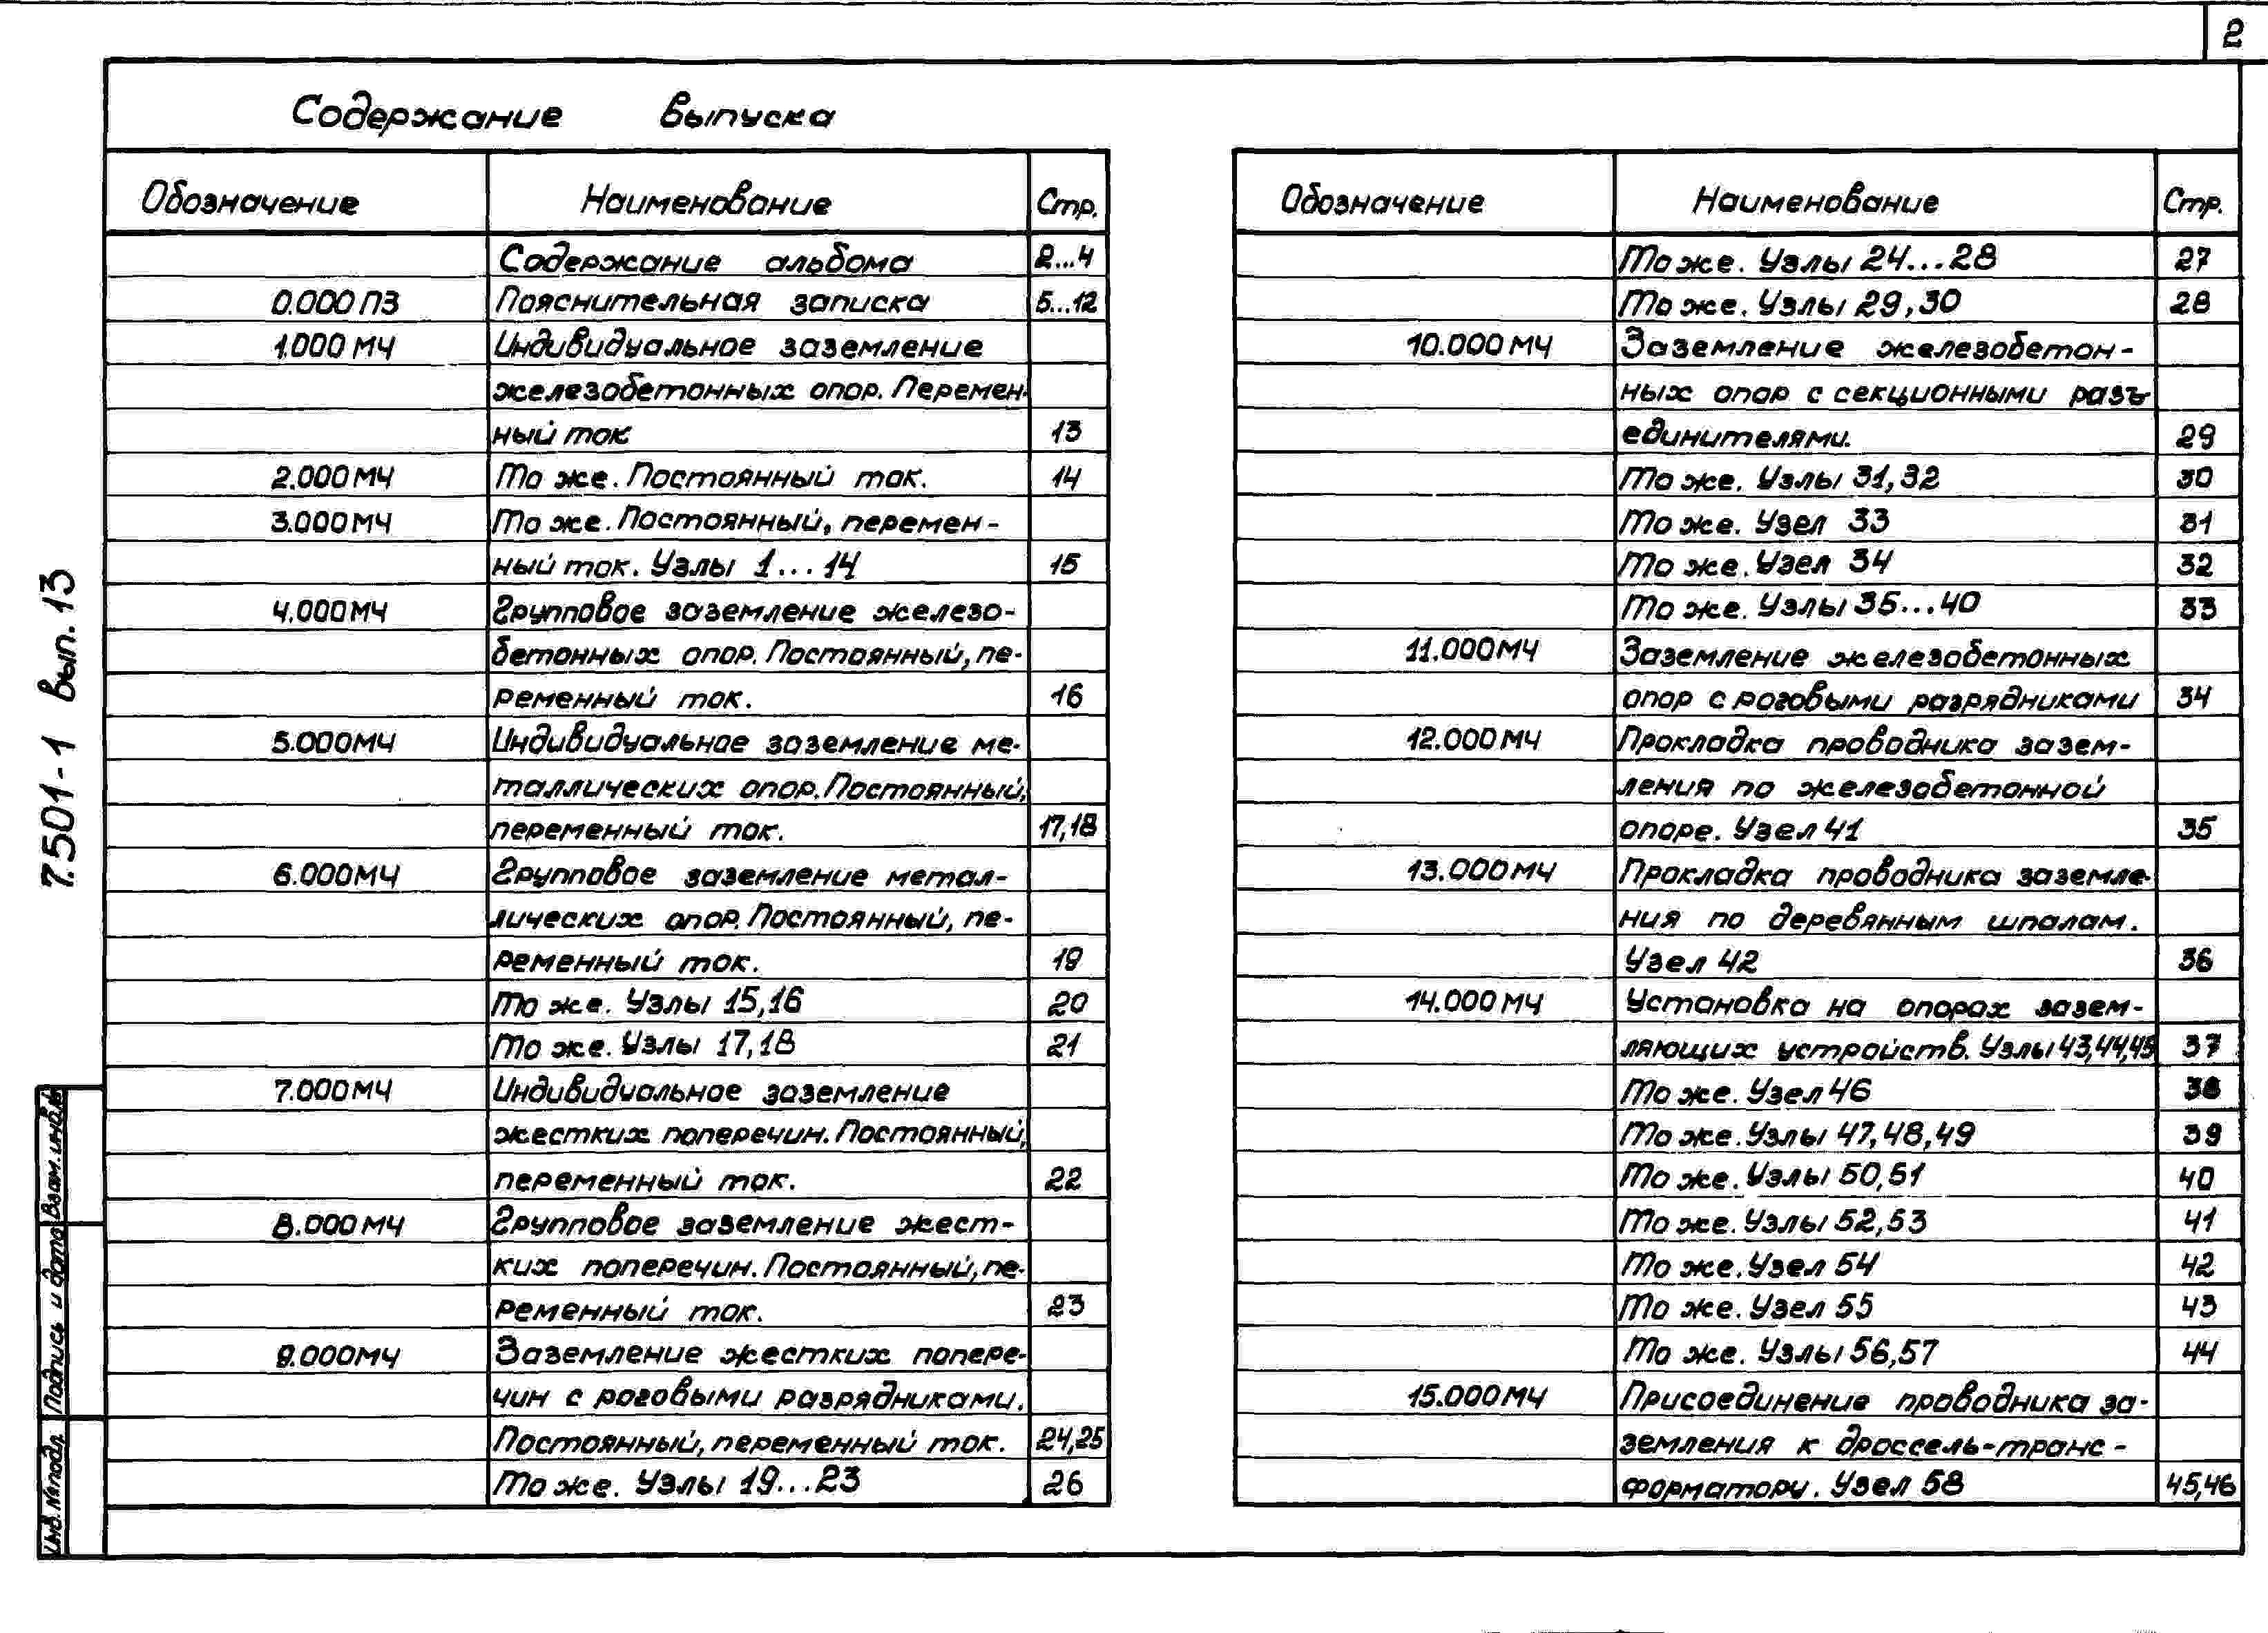 2
Содержание выпуска
Обозначение Наименование Стр.
Содержание альбома 2...4
0.000 ПЗ Пояснительная записка 5...12
1.000 МЧ Индивидуальное заземление
железобетонных опор. Перемен-
ный ток 13
2.000 МЧ То же. Постоянный ток. 14
3.000 МЧ То же. Постоянный, перемен-
ный ток. Узлы 1...14 15
4.000 МЧ Групповое заземление железо-
бетонных опор. Постоянный, пе-
ременный ток. 16
5.000 МЧ Индивидуальное заземление ме-
таллических опор. Постоянный,
переменный ток. 17,18
6.000 МЧ Групповое заземление метал-
лических опор. Постоянный, пе-
ременный ток. 19
То же. Узлы 15,16 20
То же. Узлы 17,18 21
7.000 МЧ Индивидуальное заземление
жестких поперечин. Постоянный,
переменный ток. 22
8.000 МЧ Групповое заземление жест-
ких поперечин. Постоянный, пе-
ременный ток. 23
9.000 МЧ Заземление жестких попере-
чин с роговыми разрядниками.
Постоянный, переменный ток. 24,25
То же. Узлы 19...23 26
Обозначение Наименование Стр.
То же. Узлы 24...28 27
То же. Узлы 29,30 28
10.000 МЧ Заземление железобетон-
ных опор с секционными разъ
единителями. 29
То же. Узлы 31,32 30
То же. Узел 33 31
То же. Узел 34 32
То же. Узлы 35...40 33
11.000 МЧ Заземление железобетонных
опор с роговыми разрядниками 34
12.000 МЧ Прокладка проводника зазем-
ления по железобетонной
опоре. Узел 41 35
13.000 МЧ Прокладка проводника заземле-
ния по деревянным шпалам.
Узел 42 36
14.000 МЧ Установка на опорах зазем-
ляющих устройств. Узлы 43,44,45 37
То же. Узел 46 38
То же. Узлы 47,48,49 39
То же. Узлы 50,51 40
То же. Узлы 52,53 41
То же. Узел 54 42
То же. Узел 55 43
То же. Узлы 56,57 44
15.000 МЧ Присоединение проводника за-
земления к дроссель-транс-
форматору. Узел 58 45,46
7.501-1 вып. 13
Инв. № подл. Подпись и дата Взам. инв. №